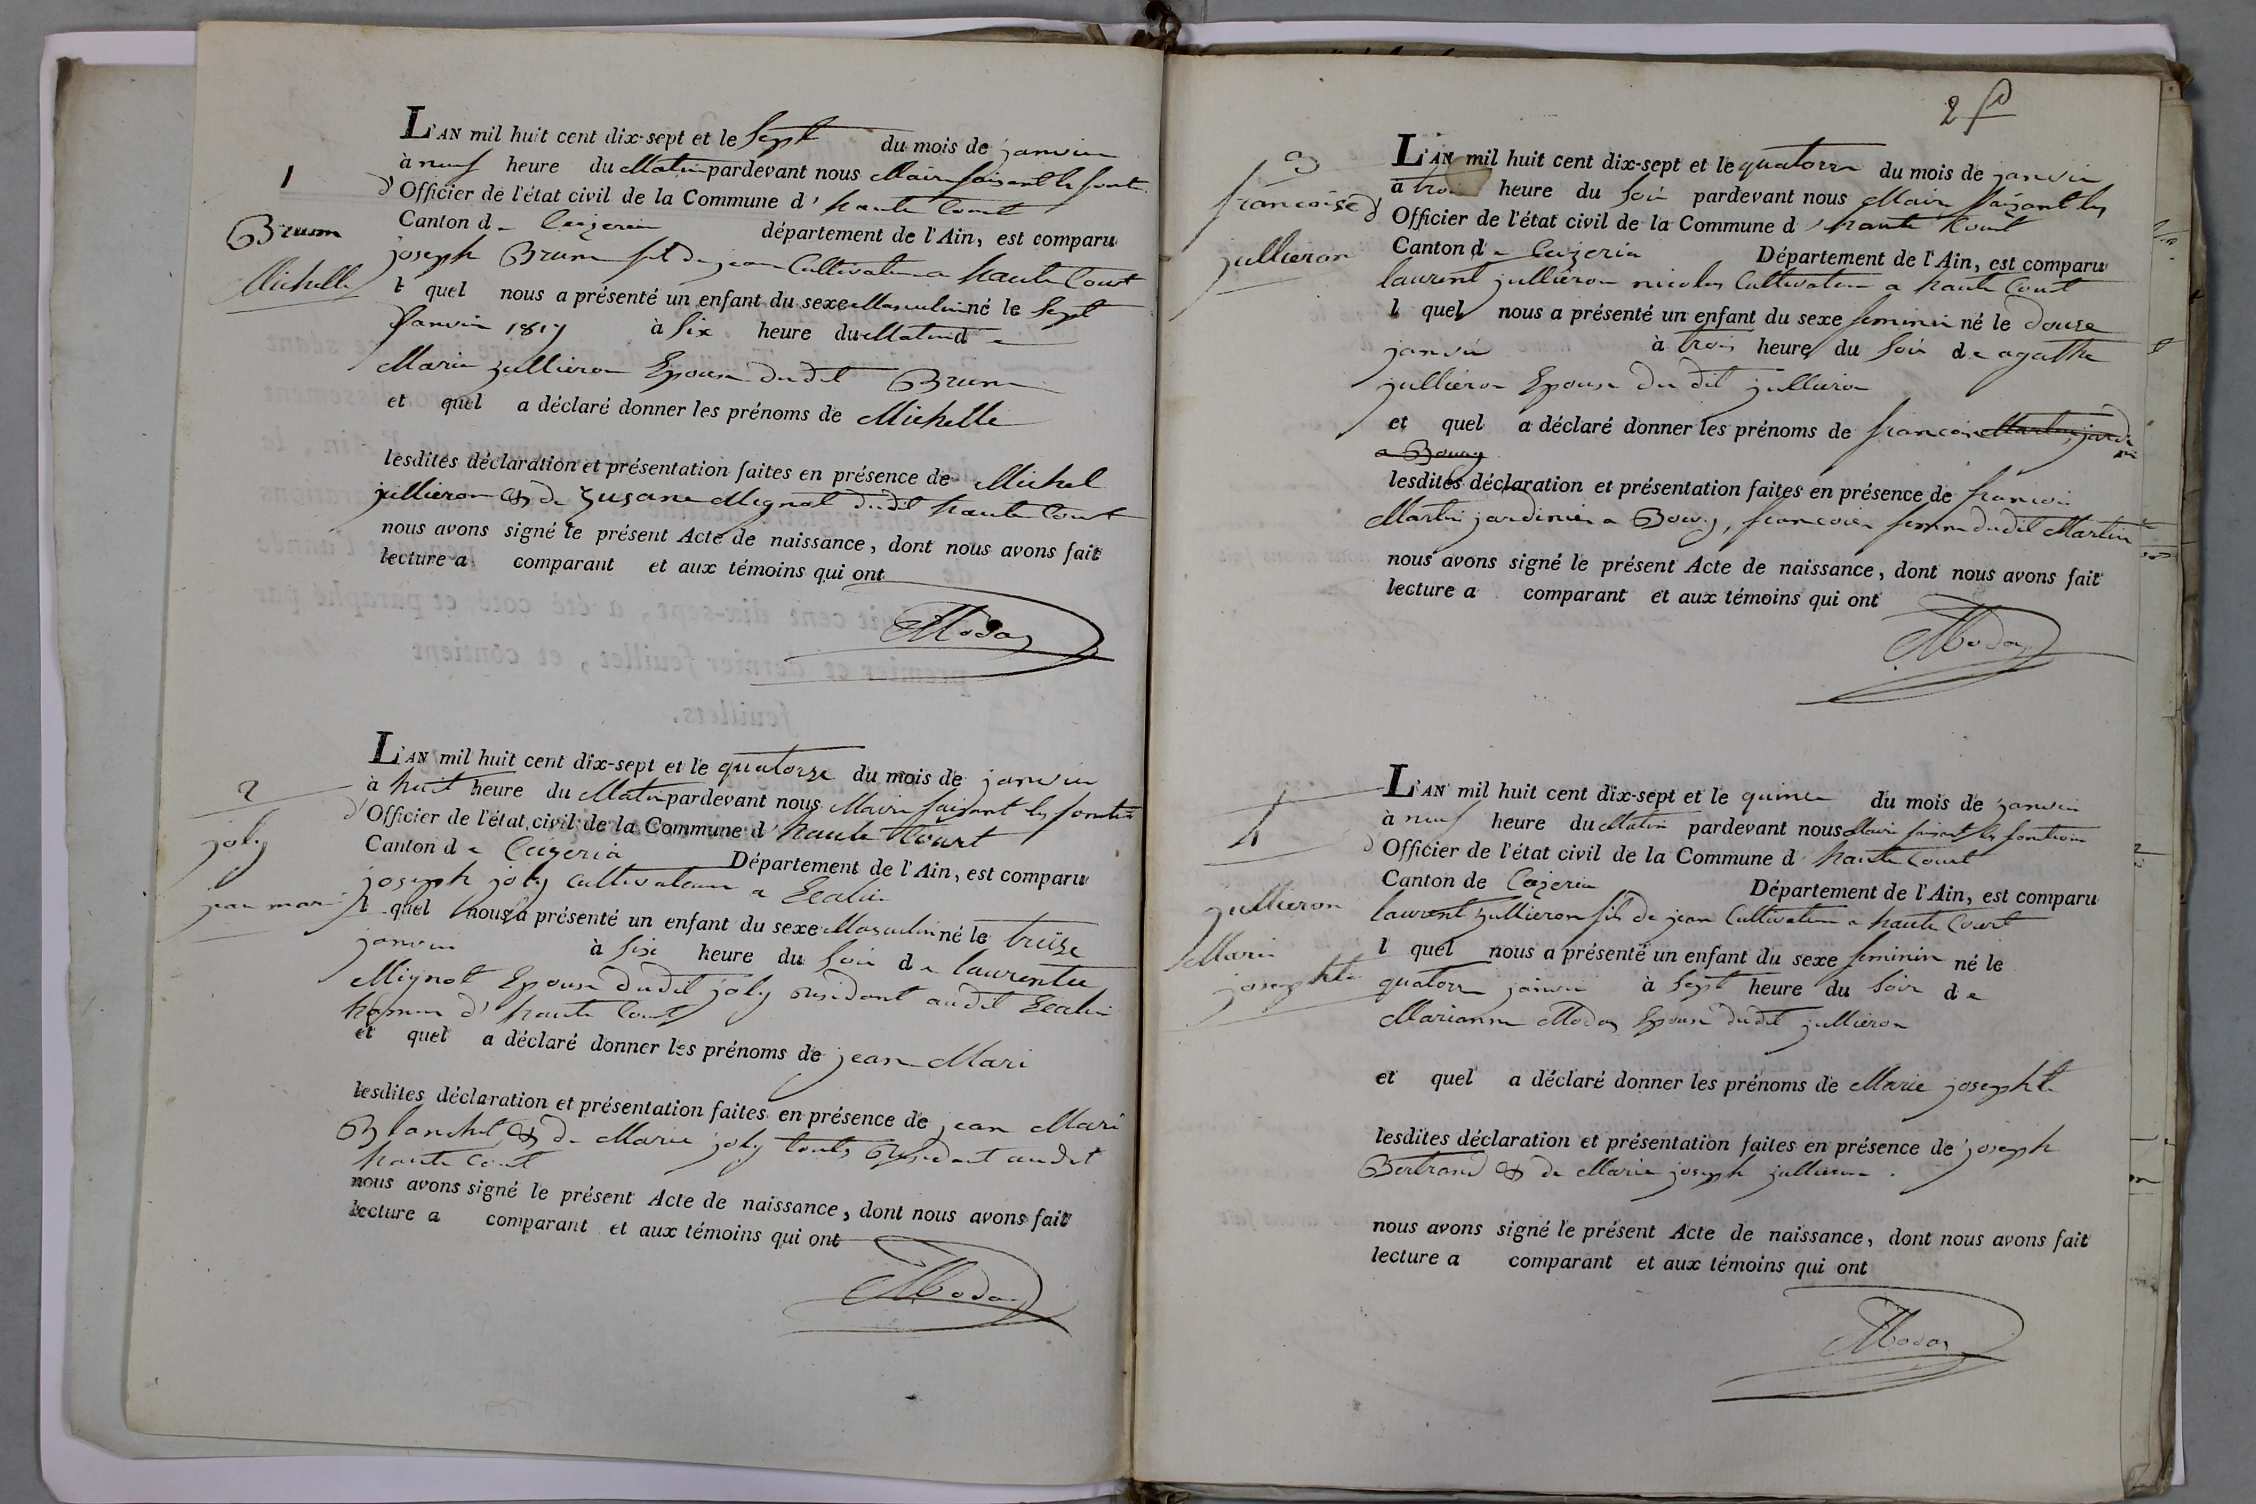 1
Brunn
Michelle
L'AN mil huit cent dix-sept et le Sept du mois de janvier
à neuf heure du Matin pardevant nous Maire faisant les foncti
d' Officier de l'état civil de la Commune d' haute Court
Canton de Ceizeria département de l'Ain, est comparu
joseph Brunn fils de jean Cultivateur a haute Court
l quel nous a présenté un enfant du sexe Masculin né le Sept
Janvier 1817 à Six heure du Matin de
Marie jullieron Epouse dudit Brunn
et quel a déclaré donner les prénoms de Michelle
lesdites déclaration et présentation faites en présence de Michel
jullieron & de Zusane Mignot dudit haute Court
nous avons signé le présent Acte de naissance, dont nous avons fait
lecture a comparant et aux témoins qui ont
Moday
2
joly
jean mari
L'AN mil huit cent dix-sept et le quatorze du mois de janvier
à huit heure du Matin pardevant nous Maire faisant les fonction
d' Officier de l'état civil de la Commune d' haute Court
Canton de Ceyzeria Département de l'Ain, est comparu
joseph joly cultivateur a
l quel nous a présenté un enfant du sexe Masculin né le treize
janvier à six heure du Soir de laurentee
Mignot Epouse dudit joly residant audit
d' haute Court
et quel a déclaré donner les prénoms de jean Mari
lesdites déclaration et présentation faites en présence de jean Mari
Blanchet & de Marie joly touts residant audit
haute Court
nous avons signé le présent Acte de naissance, dont nous avons fait
lecture a comparant et aux témoins qui ont
Moday
2
3
francoise
jullieron
L'AN mil huit cent dix-sept et le quatorze du mois de janvier
à trois heure du Soir pardevant nous Maire faisant les
d' Officier de l'état civil de la Commune d' haute Court
Canton de Ceizeria Département de l'Ain, est comparu
laurent jullieron nicolas Cultivateur a haute Court
l quel nous a présenté un enfant du sexe feminin né le douze
janvier à trois heure du Soir de agathe
jullieron Epouse du dit jullieron
et quel a déclaré donner les prénoms de francoise Martin jardi
a Bourg
lesdites déclaration et présentation faites en présence de francois
Martin jardinier a Bourg, francoise femme dudit Martin
nous avons signé le présent Acte de naissance, dont nous avons fait
lecture a comparant et aux témoins qui ont
Moday
4
jullieron
Marie
josephte
L'AN mil huit cent dix-sept et le quinze du mois de janvier
à neuf heure du Matin pardevant nous Maire faisant les fonctions
d Officier de l'état civil de la Commune d' haute Court
Canton de Ceizeria Département de l'Ain, est comparu
laurent jullieron fils de jean Cultivateur a haute Court
l quel nous a présenté un enfant du sexe feminin né le
quatorze janvier à Sept heure du Soir de
Marianne Moday Epouse dudit jullieron
et quel a déclaré donner les prénoms de Marie josephte
lesdites déclaration et présentation faites en présence de joseph
Bertrand & de Marie joseph jullieron.
nous avons signé le présent Acte de naissance, dont nous avons fait
lecture a comparant et aux témoins qui ont
Moday